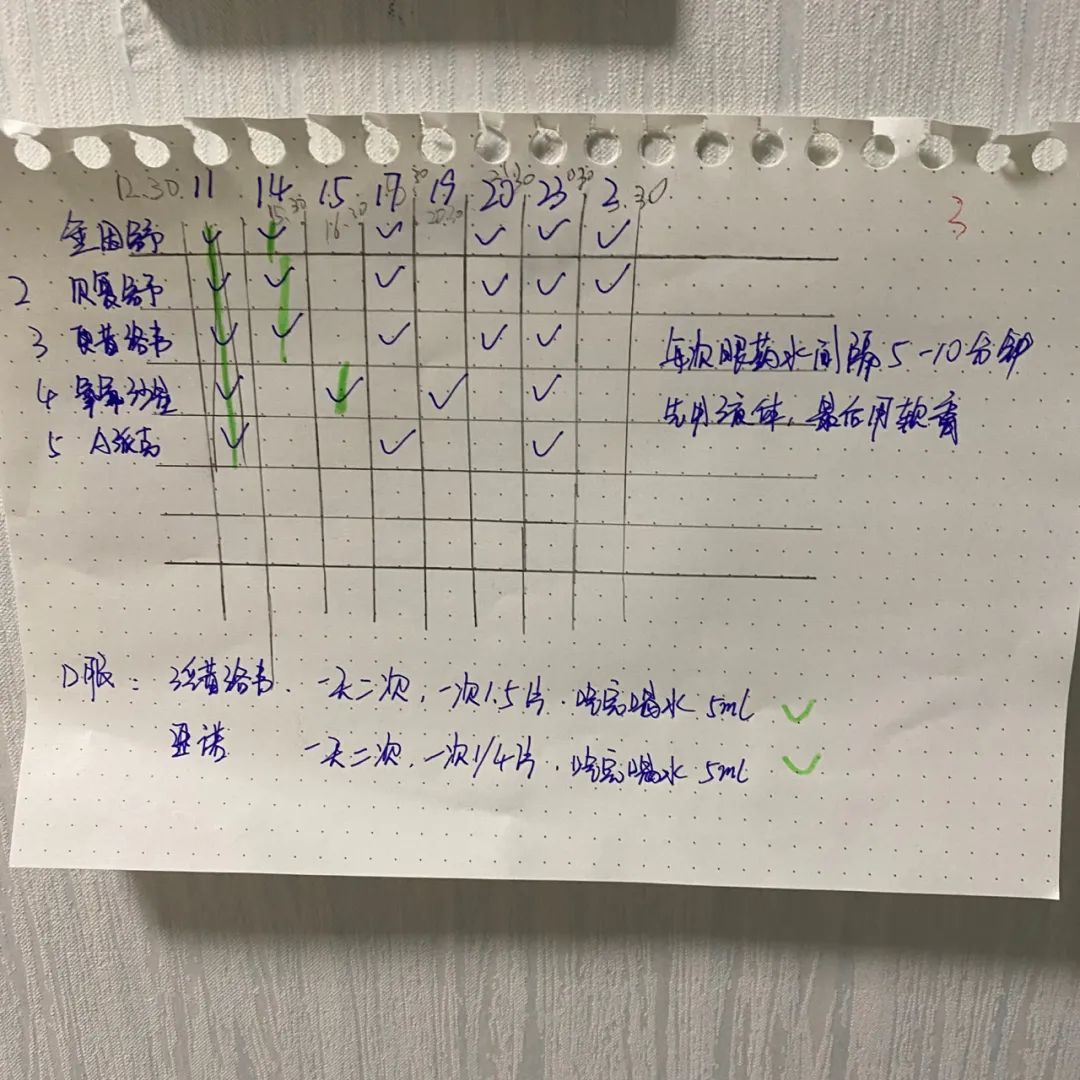 12.30. 11 14 15 17 19 20 23 2.30.
15.30 16.30 20.30
金因舒 ✓ ✓ ✓ ✓ ✓ ✓
2 贝复舒 ✓ ✓ ✓ ✓ ✓ ✓
3 更昔洛韦 ✓ ✓ ✓ ✓ ✓
4 氧氟沙星 ✓ ✓ ✓ ✓
5 ✓ ✓ ✓
3
每次眼药水间隔5-10分钟
先用液体,最后用软膏
口服: 泛昔洛韦. 一天二次,一次1.5片.吃完喝水5ml ✓
亚诺 一天二次,一次1/4片.吃完喝水5ml ✓